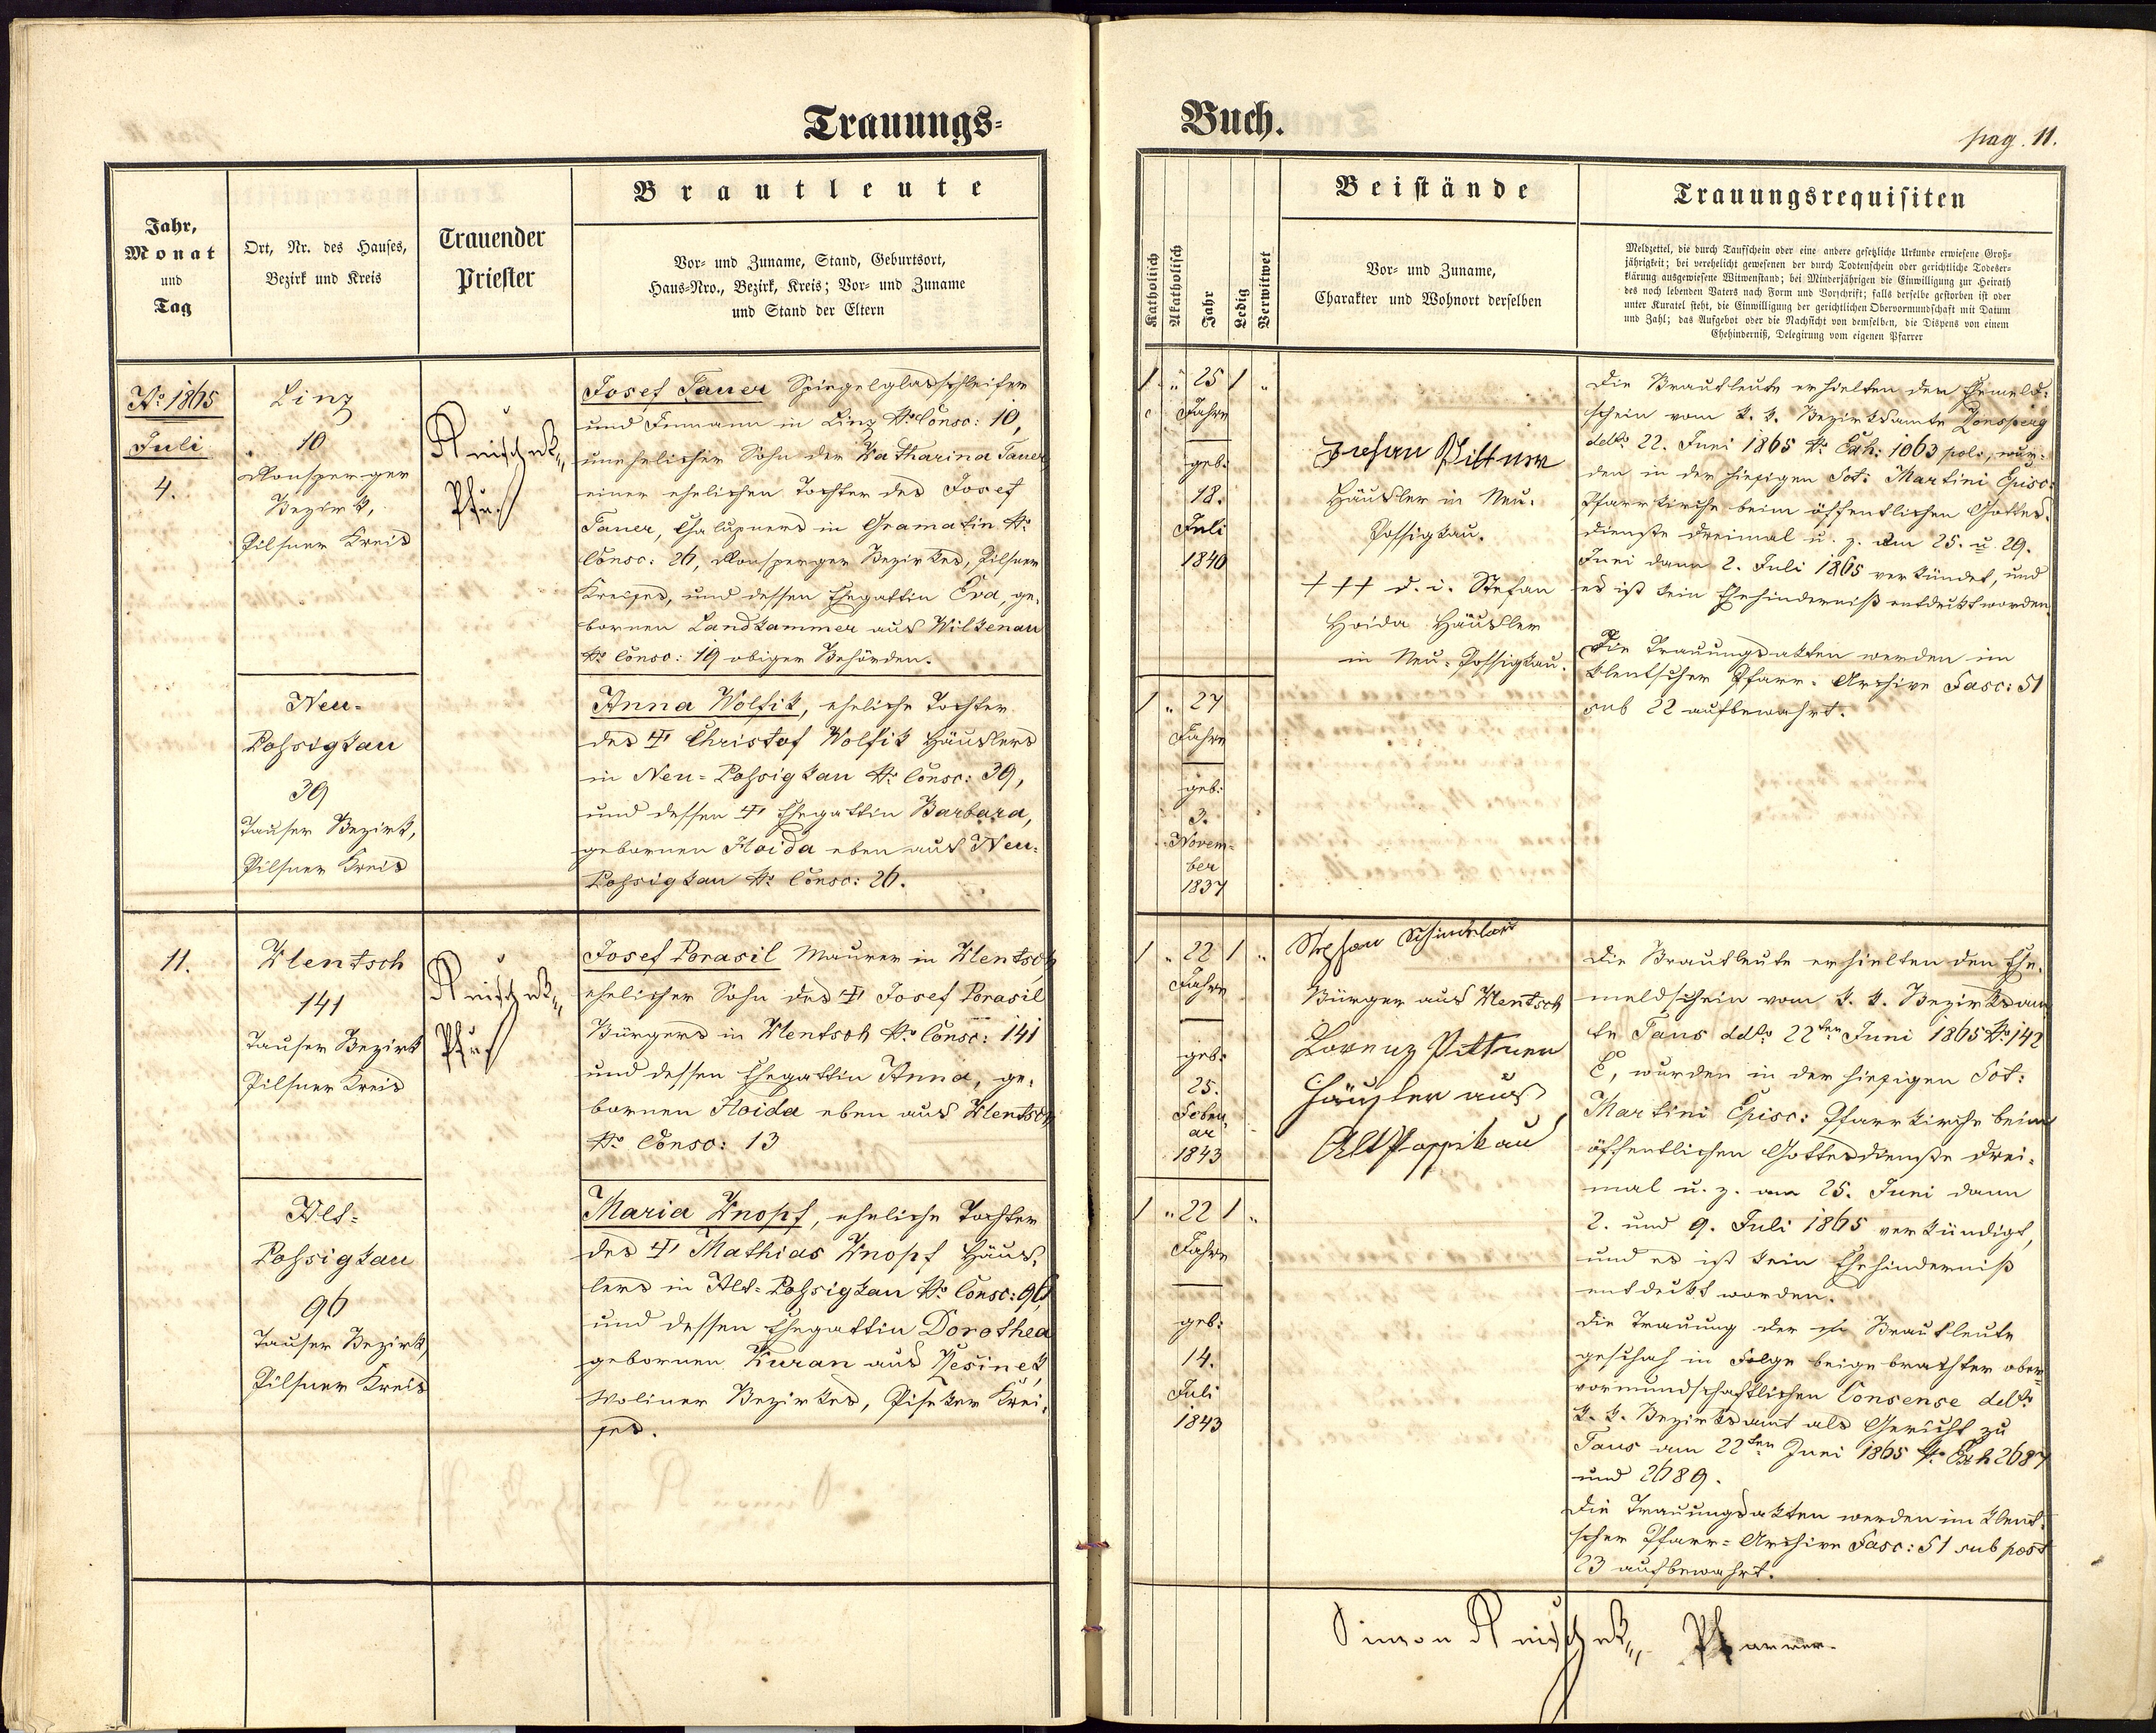 Trauungs-
Jahr,
Monat
und
Tag
Ort, Nr. des Hauses,
Bezirk und Kreis
Trauender
Priester
Brautleute
Vor- und Zuname, Stand, Geburtsort,
Haus-Nro., Bezirk, Kreis; Vor- und Zuname
und Stand der Eltern
No 1865
Juli
4.
Linz
10
Ronsperger
Bezirk,
Pilsner Kreis
Pfr.
Josef Tauer Spiegelglasschleifer
und Inmann in Linz No Consc: 10,
unehelicher Sohn der Katharina Tauer
einer ehelichen Tochter des Josef
Tauer, Chalupners in Gramatin No
Consc: 26, Ronsperger Bezirkes, Pilsner
Kreises, und dessen Ehegattin Eva, ge-
bornen Landkammer aus Wilkenau
No Consc: 19 obiger Behörden.
Neu-
Possigkau
39
Tauser Bezirk,
Pilsner Kreis
Anna Wolfik, eheliche Tochter
des † Christof Wolfik Häuslers
in Neu-Possigkau No Consc: 39,
und dessen † Ehegattin Barbara,
gebornen Hoida eben aus Neu-
Possigkau No Consc: 26.
11.
Klentsch
141
Tauser Bezirk
Pilsner Kreis
Pfr.
Josef Porasil Maurer in Klentsch
ehelicher Sohn des † Josef Porasil
Bürgers in Klentsch No Consc: 141
und dessen Ehegattin Anna, ge-
bornen Hoida eben aus Klentsch
No Consc: 13
Alt-
Possigkau
96
Tauser Bezirk,
Pilsner Kreis
Maria Knopf, eheliche Tochter
des † Mathias Knopf Häus-
lers in Alt-Possigkau No Consc: 96,
und dessen Ehegattin Dorothea
gebornen Kuran aus
Woliner Bezirkes, Piseker Krei-
ses.
Buch.
pag. 11.
Katholisch
Akatholisch
Jahr
Ledig
Verwitwet
Beistände
Vor- und Zuname,
Charakter und Wohnort derselben
Trauungsrequisiten
Meldzettel, die durch Taufschein oder eine andere gesetzliche Urkunde erwiesene Groß-
jährigkeit; bei verehelicht gewesenen der durch Todtenschein oder gerichtliche Todeser-
klärung ausgewiesene Witwenstand; bei Minderjährigen die Einwilligung zur Heirath
des noch lebenden Vaters nach Form und Vorschrift; falls derselbe gestorben ist oder
unter Kuratel steht, die Einwilligung der gerichtlichen Obervormundschaft mit Datum
und Zahl; das Aufgebot oder die Nachsicht von demselben, die Dispens von einem
Ehehinderniß, Delegirung vom eigenen Pfarrer
1 " 25 1 "
Jahre
geb:
18.
Juli
1840
Pittner
Häusler in Neu-
Possigkau.
+++ d. i. Stefan
Hoida Häusler
in Neu-Possigkau.
Die Brautleute erhielten den Ehemeld-
schein vom k. k. Bezirksamte Ronsperg
ddto 22. Juni 1865 No Exh: 1063 pol:, wur-
den in der hiesigen Sct: Martini Episc:
Pfarrkirche beim öffentlichen Gottes-
dienste dreimal u. z. am 25. u. 29.
Juni dann 2. Juli 1865 verkündet, und
es ist kein Ehehinderniß entdeckt worden.
Die Trauungsakten werden im
Klentscher Pfarr-Archive Fasc: 51
sub 22 aufbewahrt.
1 " 27
Jahre
geb:
3.
Novem-
ber
1837
1 " 22 1 "
Jahre
geb:
25.
Febru-
ar
1843
Stephan Schindelar
Bürger aus Klentsch
Lorenz Pittner
Häusler aus
Alt
Die Brautleute erhielten den Ehe-
meldschein vom k. k. Bezirksam-
te Taus ddto 22ten Juni 1865 No 142
E, wurden in der hiesigen Sct:
Martini Episc: Pfarrkirche beim
öffentlichen Gottesdienste drei-
mal u. z. am 25. Juni dann
2. und 9. Juli 1865 verkündigt,
und es ist kein Ehehinderniß
entdeckt worden.
Die Trauung der Brautleute
geschah in Folge beigebrachter ober-
vormundschaftlichen Consense ddto
k. k. Bezirksamt als Gericht zu
Taus am 22ten Juni 1865 No Exh 2687
und 2689.
Die Trauungsakten werden im Klent-
scher Pfarr-Archive Fasc: 51 sub post
23 aufbewahrt.
1 " 22 1 "
Jahre
geb:
14.
Juli
1843
Simon
Pfarrer.